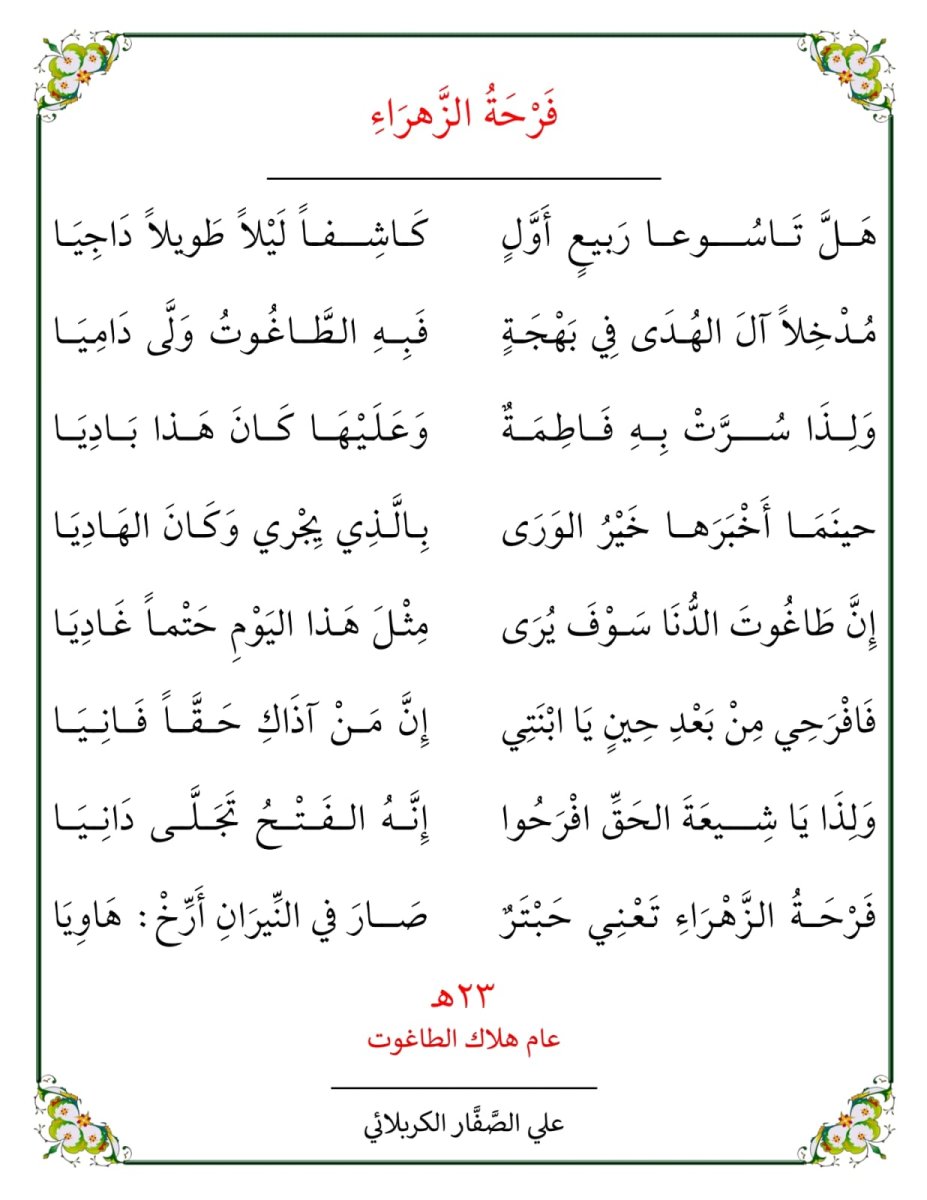 فَرْحَةُ الزَّهرَاءِ
هَلَّ تَاسُوعا رَبِيعٍ أَوَّلٍ كَاشِفاً لَيْلاً طَويلاً دَاجِيَا
مُدْخِلاً آلَ الهُدَى فِي بَهْجَةٍ فَبِهِ الطَّاغُوتُ وَلَّى دَامِيَا
وَلِذَا سُرَّتْ بِهِ فَاطِمَةٌ وَعَلَيْهَا كَانَ هَذا بَادِيَا
حينَمَا أَخْبَرَها خَيْرُ الوَرَى بِالَّذِي يِجْري وَكَانَ الهَادِيَا
إِنَّ طَاغُوتَ الدُّنَا سَوْفَ يُرَى مِثْلَ هَذا اليَوْمِ حَتْماً غَادِيَا
فَافْرَحِي مِنْ بَعْدِ حِينٍ يَا ابْنَتِي إِنَّ مَنْ آذَاكِ حَقَّاً فَانِيَا
وَلِذَا يَا شِيعَةَ الحَقِّ افْرَحُوا إِنَّهُ الفَتْحُ تَجَلَّى دَانِيَا
فَرْحَةُ الزَّهْرَاءِ تَعْنِي حَبْتَرٌ صَارَ في النِّيرَانِ أَرِّخْ: هَاوِيَا
٢٣هـ
عام هلاك الطاغوت
علي الصَّفَّار الكربلائي